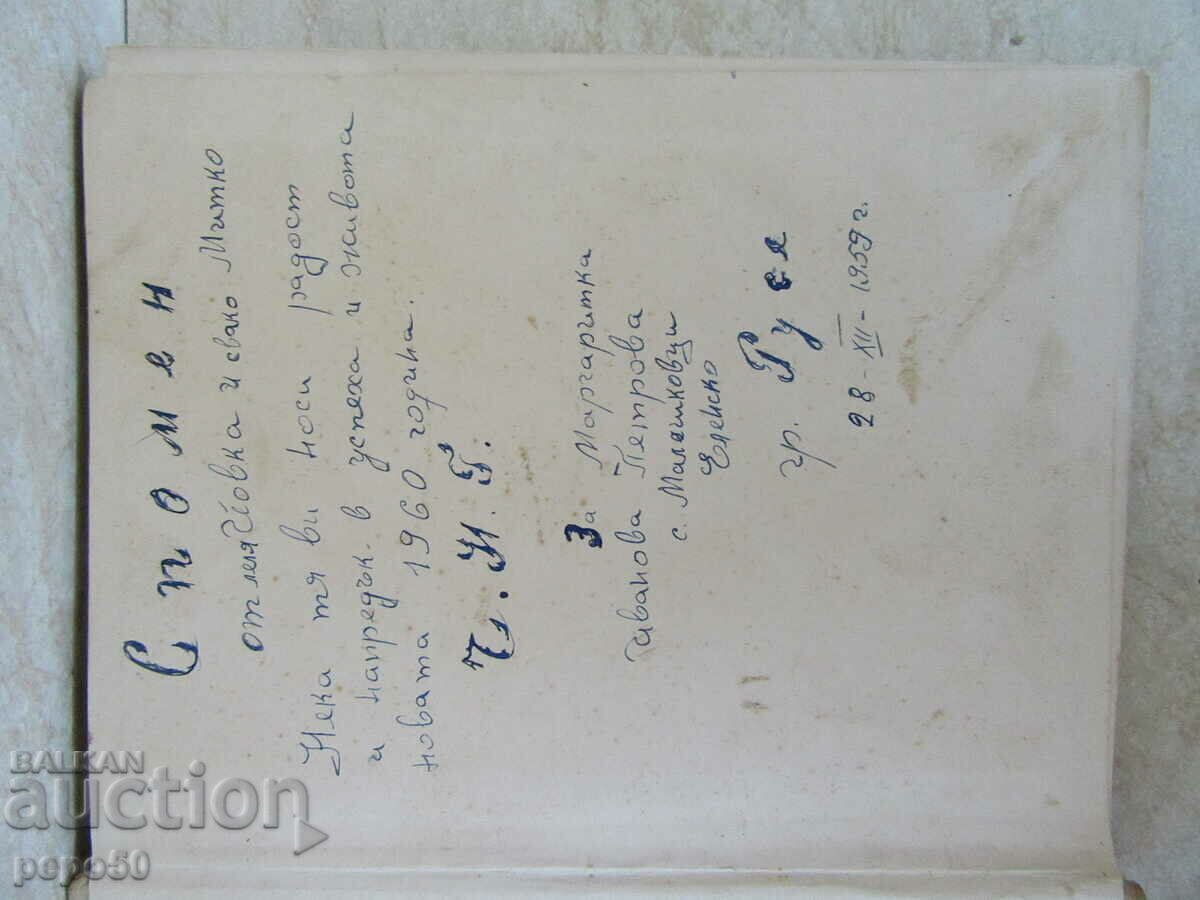 Спомен
от леля Йовка и свако Митко
Нека тя ви носи радост
и напредък. в успеха и живота
новата 1960 година.
Ч. Н. Г.
За Маргаритка
Иванова Петрова
с. Малашковци
Еленско
гр. Русе
28 - XII - 1959 г.
BALKAN
auction
pepo50